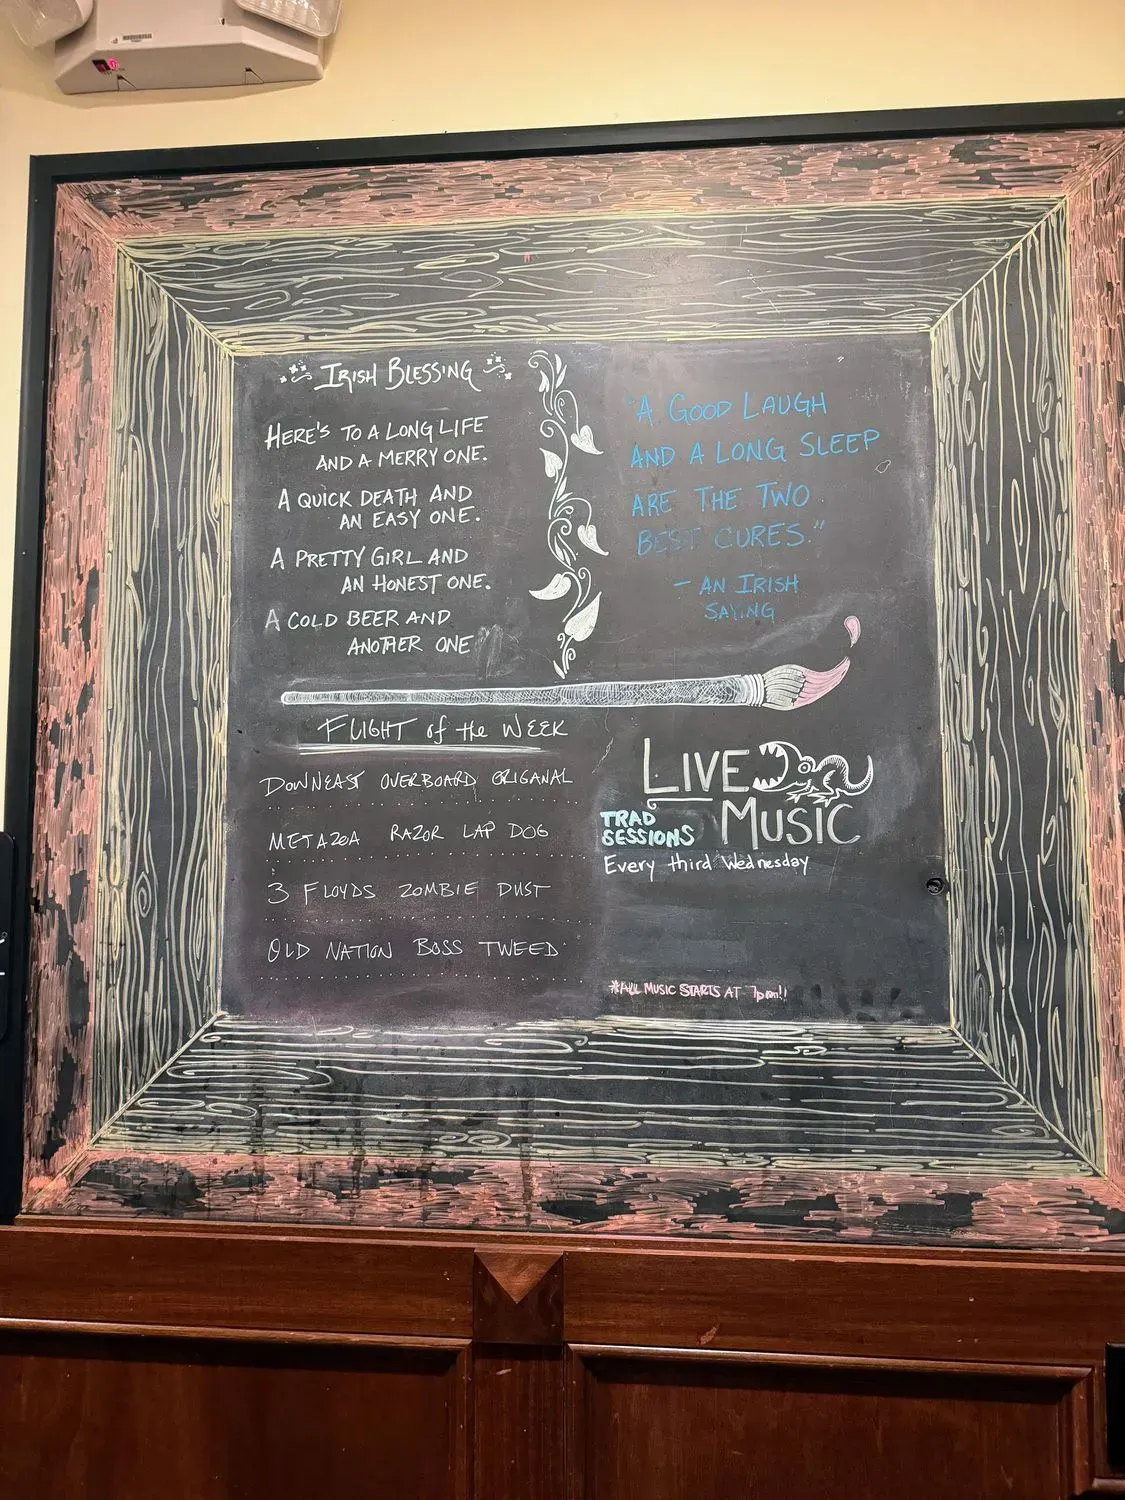 Irish Blessing
Here's to a long life
and a merry one.
A quick death and
an easy one.
A pretty girl and
an honest one.
A cold beer and
another one
"A Good Laugh
and a long sleep
are the two
best cures."
- an Irish
saying
Flight of the Week
Downeast Overboard Origanal
Metazoa Razor Lap Dog
3 Floyds Zombie Dust
Old Nation Boss Tweed
Live
Music
Trad
Sessions
Every third Wednesday
*All music starts at 7pm!!